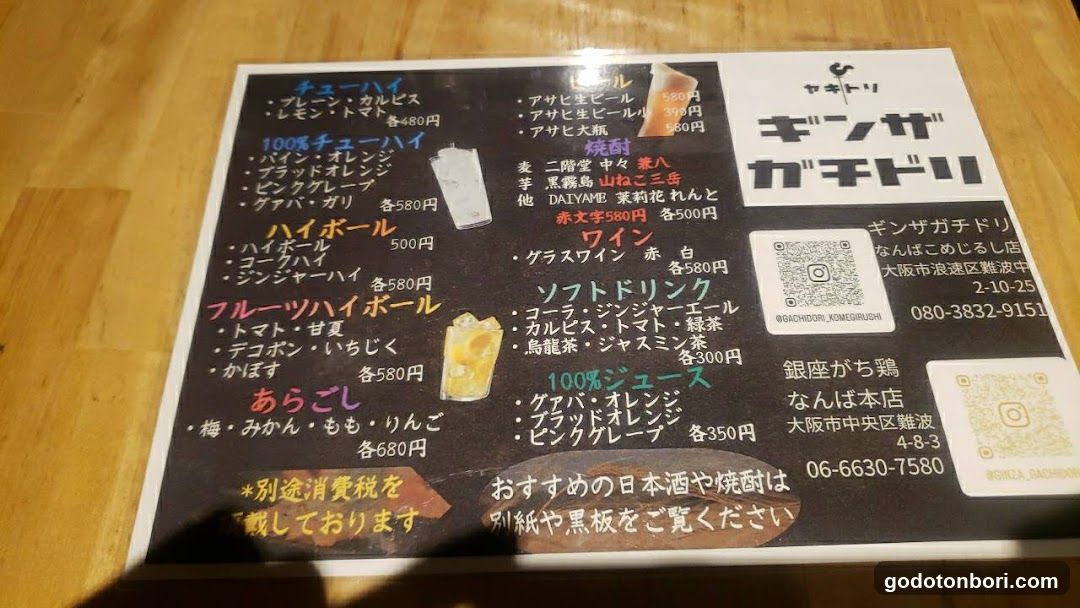 チューハイ
・プレーン・カルピス
・レモン・トマト
各480円
100%チューハイ
・パイン・オレンジ
・ブラッドオレンジ
・ピンクグレープ
・グァバ・ガリ 各580円
ハイボール
・ハイボール 500円
・コークハイ
・ジンジャーハイ
各580円
フルーツハイボール
・トマト・甘夏
・デコポン・いちじく
・かぼす 各580円
あらごし
・梅・みかん・もも・りんご
各680円
*別途消費税を
頂戴しております
ビール
・アサヒ生ビール 580円
・アサヒ生ビール小 390円
・アサヒ大瓶 580円
焼酎
麦 二階堂 中々 兼八
芋 黒霧島 山ねこ三岳
他 DAIYAME 茉莉花 れんと
赤文字580円 各500円
ワイン
・グラスワイン 赤 白
各580円
ソフトドリンク
・コーラ・ジンジャーエール
・カルピス・トマト・緑茶
・烏龍茶・ジャスミン茶
各300円
100%ジュース
・グァバ・オレンジ
・ブラッドオレンジ
・ピンクグレープ 各350円
おすすめの日本酒や焼酎は
別紙や黒板をご覧ください
ヤキトリ
ギンザ
ガチドリ
ギンザガチドリ
なんばこめじるし店
大阪市浪速区難波中
2-10-25
080-3832-9151
@GACHIDORI_KOMEGIRUSHI
銀座がち鶏
なんば本店
大阪市中央区難波
4-8-3
06-6630-7580
@GINZA_GACHIDORI
godotonbori.com